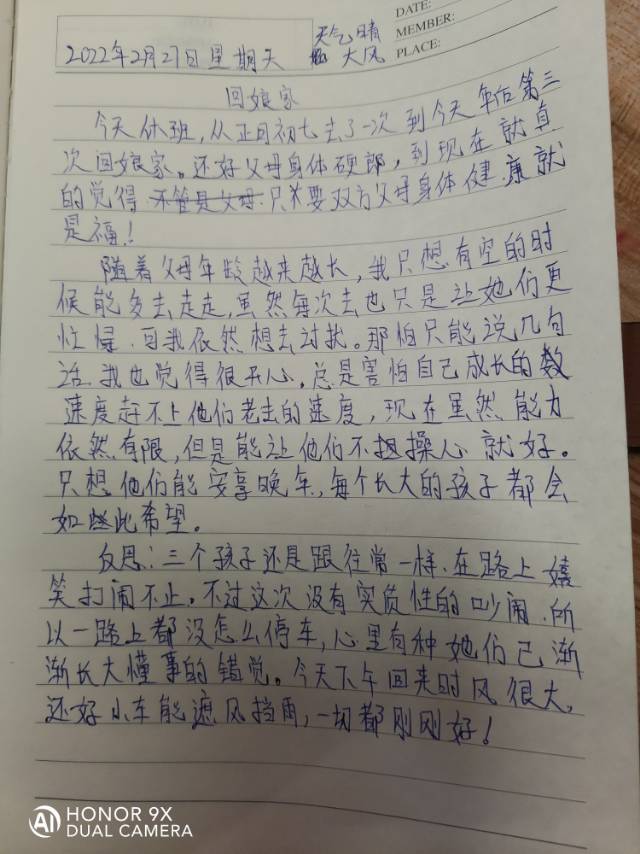 DATE:
MEMBER:
PLACE:
2022年2月27日星期天 天气晴
大风
回娘家
今天休班,从正月初七去了一次到今天年后第三
次回娘家。还好父母身体硬郎,到现在就真
的觉得不管是父母只要双方父母身体健康就
是福!
随着父母年龄越来越长,我只想有空的时
候能多去走走,虽然每次去也只是让她们更
忙慢.可我依然想去讨扰。那怕只能说几句
话.我也觉得很开心。总是害怕自己成长的数
速度赶不上他们老去的速度,现在虽然能力
依然有限,但是能让他们不担操心就好。
只想他们能安享晚年,每个长大的孩子都会
如此希望。
反思:三个孩子还是跟往常一样.在路上嬉
笑打闹不止。不过这次没有实质性的吵闹.所
以一路上都没怎么停车,心里有种她们已渐
渐长大懂事的错觉。今天下午回来时风很大,
还好小车能遮风挡雨,一切都刚刚好!
HONOR 9X
DUAL CAMERA